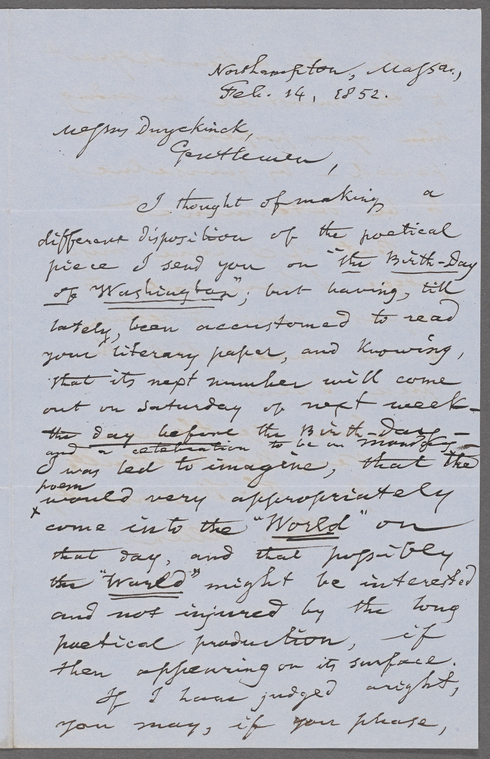 Northampton, Massa.,
Feb. 14, 1852.
Messrs Duyckinck,
Gentlemen,
I thought of making a
different disposition of the poetical
piece I send you on "the Birth-Day
of Washington"; but having, till
lately, been accustomed to read
your literary paper, and knowing,
that its next number will come
out on Saturday of next week—
the day before the Birth-Day—
and a celebration to be on Monday—
I was led to imagine, that the
poem
would very appropriately
come into the "World" on
that day, and that possibly
the "World" might be interested
and not injured by the long
poetical production, if
then appearing on its surface.
If I have judged aright,
you may, if you please,